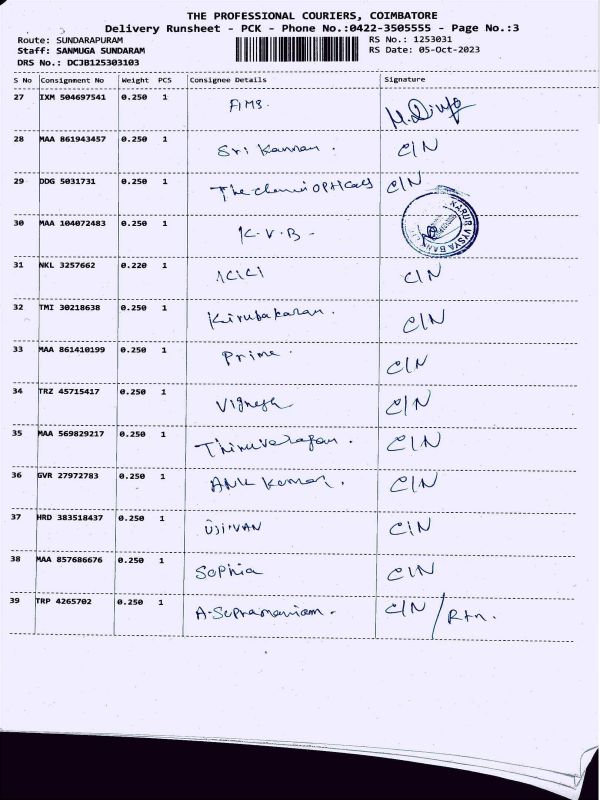 THE PROFESSIONAL COURIERS, COIMBATORE
Delivery Runsheet - PCK - Phone No.:0422-3505555 - Page No.:3
Route: SUNDARAPURAM RS No.: 1253031
Staff: SANMUGA SUNDARAM RS Date: 05-Oct-2023
DRS No.: DCJB125303103
S No Consignment No Weight PCS Consignee Details Signature
27 IXM 504697541 0.250 1
28 MAA 861943457 0.250 1 Sri Kannan. C/N
29 DDG 5031731 0.250 1 The Opticals C/N
30 MAA 104072483 0.250 1 K.V.B- KARUR VYSYA BANK
31 NKL 3257662 0.220 1 ICICI C/N
32 TMI 30218638 0.250 1 Kirubakaran. C/N
33 MAA 861410199 0.250 1 Prime. C/N
34 TRZ 45715417 0.250 1 Vignesh C/N
35 MAA 569829217 0.250 1 C/N
36 GVR 27972783 0.250 1 Kumar. C/N
37 HRD 383518437 0.250 1 UJJIVAN C/N
38 MAA 857686676 0.250 1 Sophia C/N
39 TRP 4265702 0.250 1 A.Supramaniam. C/N / Rtn.